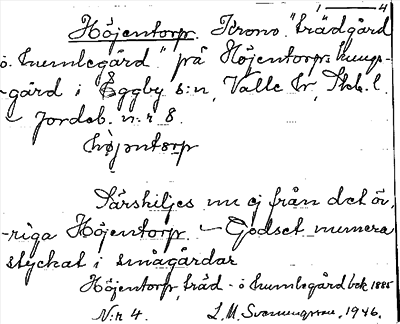 1 4
Höjentorp. Krono "trädgård
o. humlegård" på Höjentorps kungs-
-gård i Eggby s:n, Valle hr, Skb. l.
- Jordeb. n:r 8.
höjentorp
Särskiljes nu ej från det öv.
-riga Höjentorp. - Godset numera
styckat i smågårdar
Höjentorp, träd- o humlegård bek 1885
N:r 4. L. M. Svanungsson, 1946.